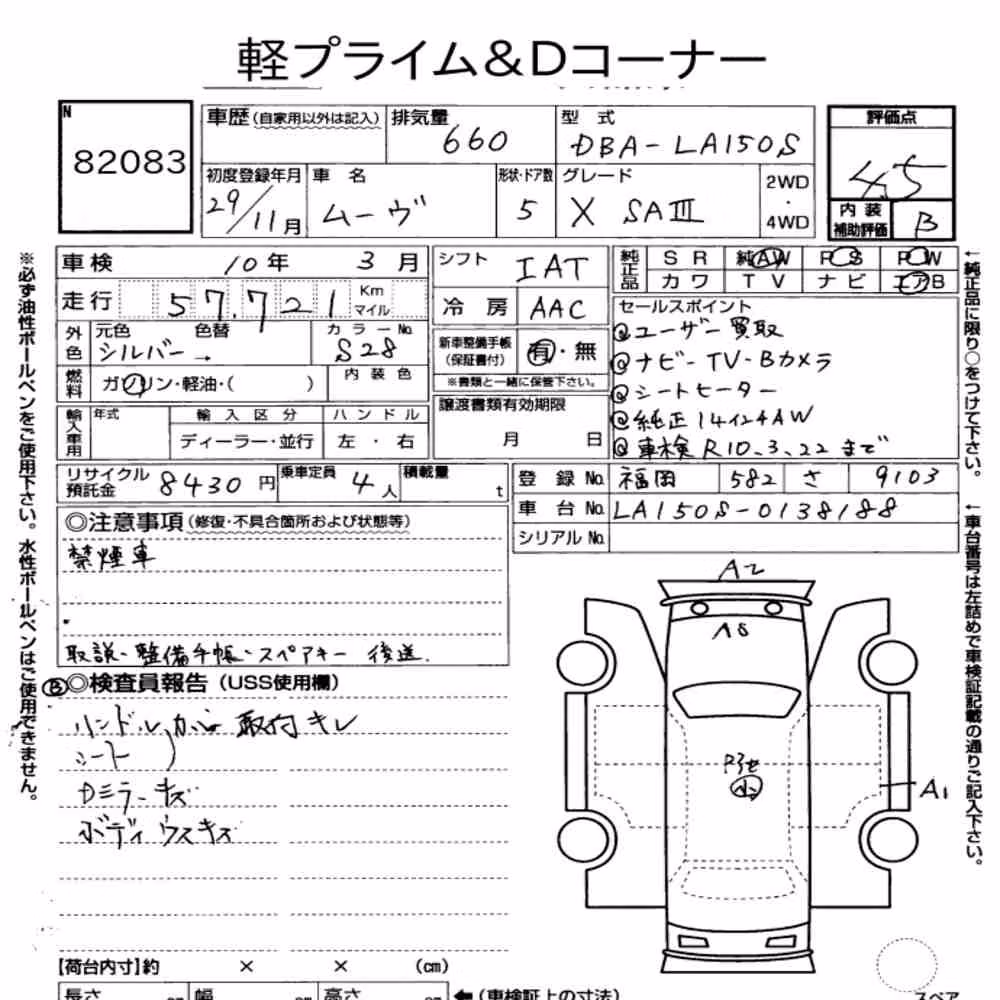 軽プライム&Dコーナー
N
82083
車歴(自家用以外は記入)
排気量
660
型 式
DBA-LA150S
評価点
4.5
初度登録年月
29/11月
車 名
ムーヴ
形状・ドア数
5
グレード
X SAⅢ
2WD
・
4WD
内 装
補助評価
B
※必ず油性ボールペンをご使用下さい。水性ボールペンはご使用できません。
車検
10年 3月
シフト
IAT
純正品
SR 純AW PS PW
カワ TV ナビ エアB
走行
57.721
Km
マイル
冷 房
AAC
セールスポイント
①ユーザー買取
②ナビ-TV-Bカメラ
③シートヒーター
④純正14インチAW
⑤車検R10.3.22まで
外色
元色
色替
カラーNo.
シルバー→
S28
新車整備手帳
(保証書付)
有・無
※書類と一緒に保管下さい。
燃料
ガソリン・軽油・( )
内装色
輸入車用
年式
輸入区分
ハンドル
ディーラー・並行
左・右
譲渡書類有効期限
月 日
リサイクル
預託金
8430円
乗車定員
4人
積載量
t
登録No.
福岡 582 さ 9103
車台No.
LA150S-0138188
シリアルNo.
◎注意事項(修復・不具合箇所および状態等)
禁煙車
取説・整備手帳・スペアキー 後送.
B◎検査員報告(USS使用欄)
ハンドルカバー取付キレ
シート
Dミラーキズ
ボディウスキズ
A2
A8
小
A1
←純正品に限り○をつけて下さい。
←車台番号は左詰めで車検証記載の通りご記入下さい。
【荷台内寸】約 × × (cm)
長さ cm 幅 cm 高さ cm ←(車検証上の寸法)
スペア